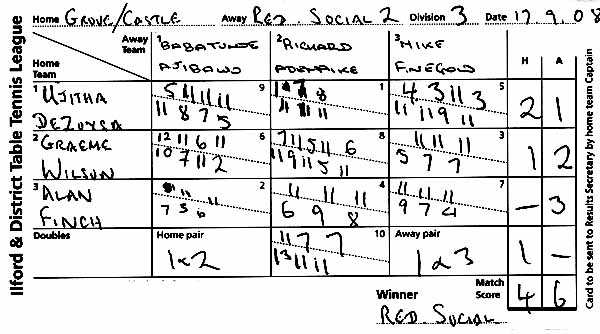 Ilford & District Table Tennis League
Home GROVE/CASTLE Away RED. SOCIAL 2 Division 3 Date 17.9.08
Away Team
Home Team
1 BABATUNDE AJIBAWO
2 RICHARD ADENAIKE
3 MIKE FINEGOLD
H A
1 UJITHA DEZOYSA
9
5 11 11 11
11 8 7 5
1
8
4 11 11
5
4 3 11 3
11 11 9 11
2 1
2 GRAEME WILSON
6
12 11 6 11
10 7 11 2
8
7 11 5 11 6
11 9 11 5 11
3
11 11 11
5 7 7
1 2
3 ALAN FINCH
2
11 11
7 5 6
4
11 11 11
6 9 8
7
11 11 11
9 7 4
- 3
Doubles
Home pair
1 & 2
10
11 7 7
13 11 11
Away pair
1 & 3
1 -
Winner
RED. SOCIAL
Match Score
4 6
Card to be sent to Results Secretary by home team Captain